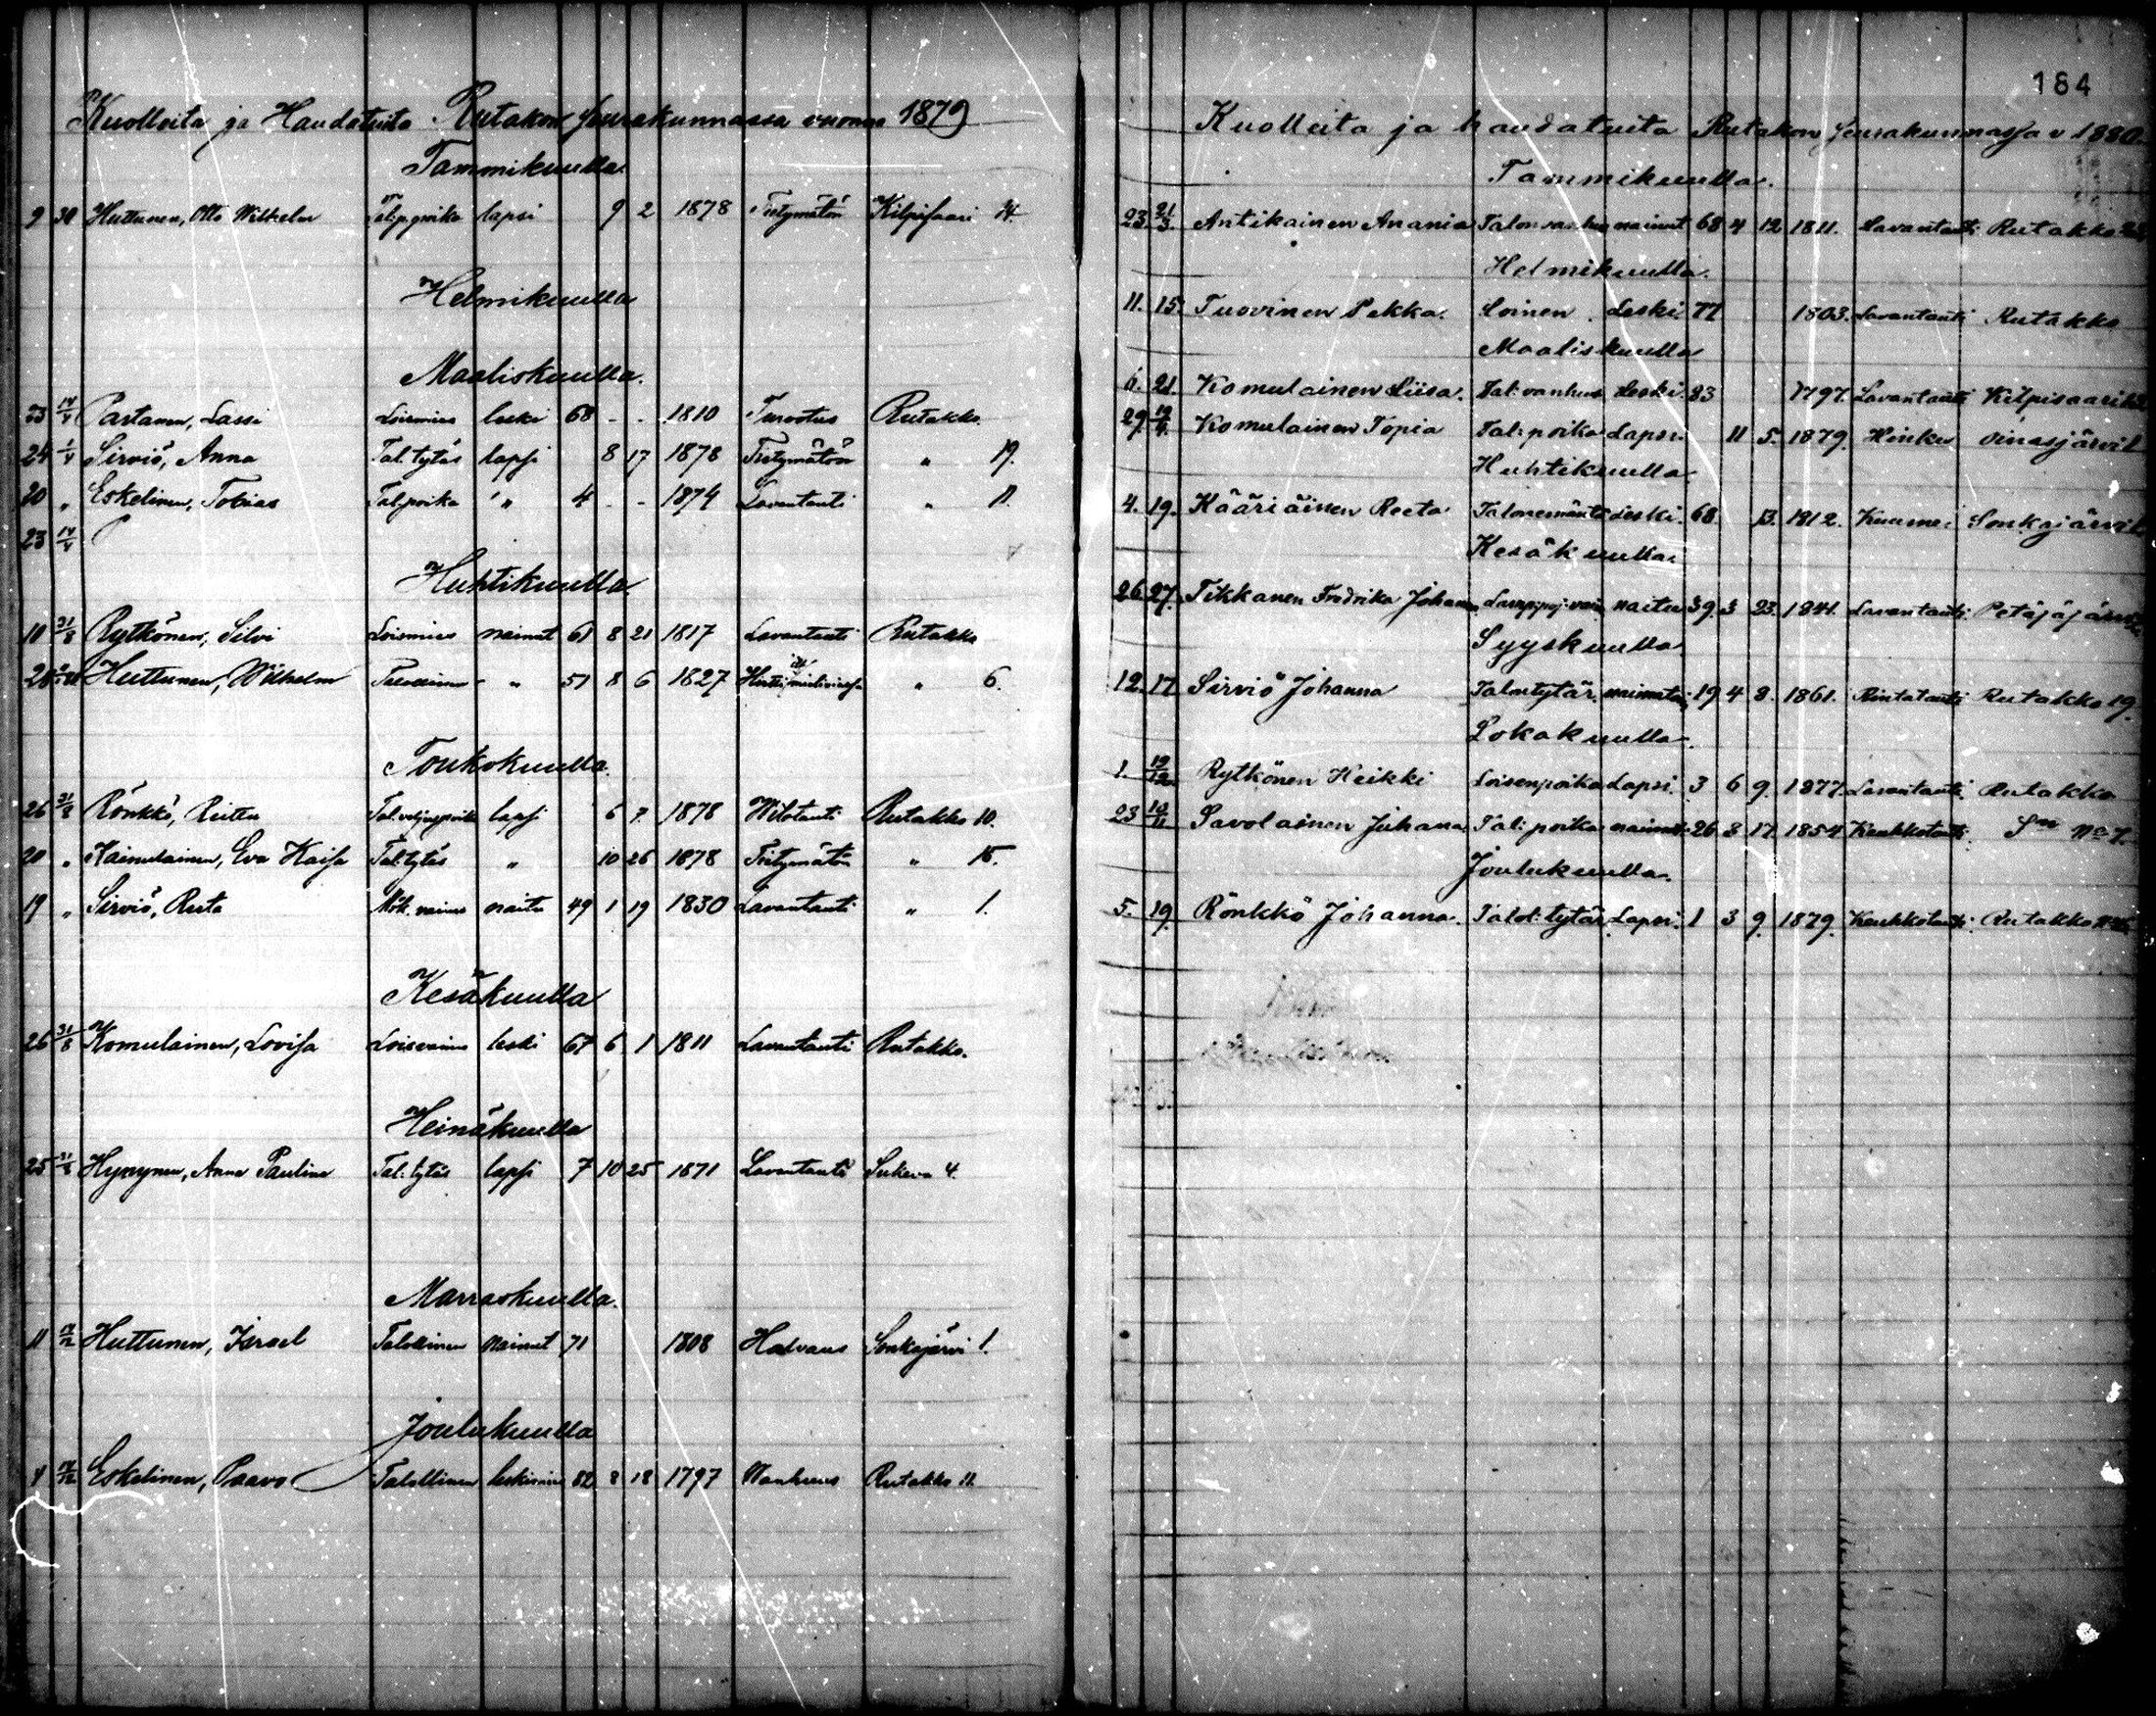 Kuolleita ja Haudatuita Rutakon seurakunnassa vuonna 1879
Tammikuulla.
9 30 Huttunen, Otto Wilhelm Tal.p.poika lapsi 9 2 1878 Tietymätön Kilpisaari 14
Helmikuulla
Maaliskuulla.
23 14/4 Partanen, Lassi Loismies leski 68 - - 1810 Turvotus Rutakko.
24 1/4 Sirviö, Anna Tal. tytär lapsi 8 17 1878 Tietymätön " 19.
20 " Eskelinen, Tobias Tal.poika " 4 - - 1874 Lavantauti " 11
23 14/4 P
Huhtikuulla.
10 31/8 Rytkönen, Silvi Loismies nainut 61 8 21 1817 Lavantauti Rutakko
28 Huttunen, Wilhelm Talollinen " 51 8 6 1827 " 6.
Toukokuulla.
26 31/8 Rönkkö, Reittu lapsi 6 7. 1878 Wilutauti Rutakko 10.
20 " Kainulainen, Eva Kaisa Tal:tytär " 10 26 1878 Tietymätön " 15.
19 " Sirviö, Reeta Mök. vaimo naitu 49 1 19 1830 Lavantauti " 1.
Kesäkuulla
26 31/8 Komulainen, Lovisa Loisvaimo leski 67 6 1 1811 Lavantauti Rutakko.
Heinäkuulla
25 31/8 Hynynen, Anna Paulina Tal: tytär lapsi 7 10 25 1871 Lavantauti Sukeva 4.
Marraskuulla.
11 Huttunen, Israel Talollinen nainut 71 1808 Halvaus Sonkajärvi 1.
Joulukuulla
4 Eskelinen, Paavo Talollinen leskimies 82 8 18 1797 Wanhuus Rutakko 11.
184
Kuolleita ja haudatuita Rutakon Seurakunnassa v 1880.
Tammikuulla.
23 21/3. Antikainen Anania Talon vanhus nainut 68 4 12 1811. Lavantauti Rutakko
Helmikuulla.
11. 15. Tuovinen Pekka. Loinen. Leski 77 1803. Lavantauti Rutakko
Maaliskuulla
6. 21. Komulainen Liisa. Tal: vanhus Leski. 83 1797. Lavantauti Kilpisaari
29. Komulainen Topia Tal: poika Lapsi. 11 5. 1879. Hinku Oinasjärvi
Huhtikuulla.
4. 19. Kääriäinen Reeta Talonemäntä Leski. 68 13. 1812. Kuume Sonkajärvi
Kesäkuulla.
26 27. Tikkanen Fredrika Johanna naitu 39. 3 23. 1841. Lavantauti Petäjäjärvi
Syyskuulla
12. 17. Sirviö Johanna Talontytär naimatoin 19 4 8. 1861. Rintatauti Rutakko 19.
Lokakuulla.
1. 19/12 Rytkönen Heikki Loisenpoika Lapsi. 3 6 9. 1877. Lavantauti Rutakko
23 Savolainen Juhana Tal: poika 26 8 17. 1854 Keuhkotauti. Sm No 7.
Joulukuulla.
5. 19. Rönkkö Johanna. Talol: tytär Lapsi. 1 3 9. 1879. Keuhkotauti. Rutakko